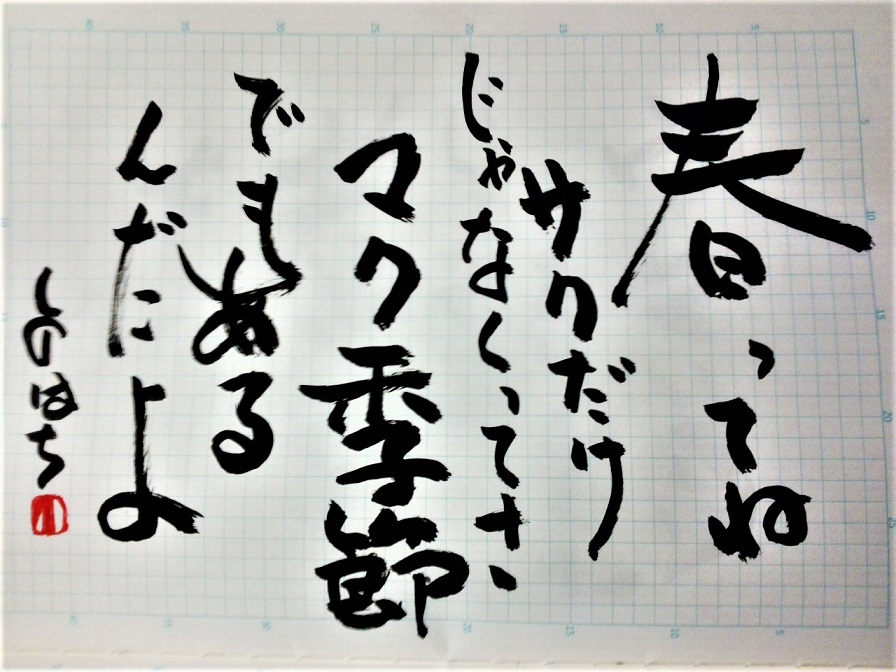 春ってね
サクだけ
じゃなくってさ、
マク季節
でもある
んだよ
しのはち